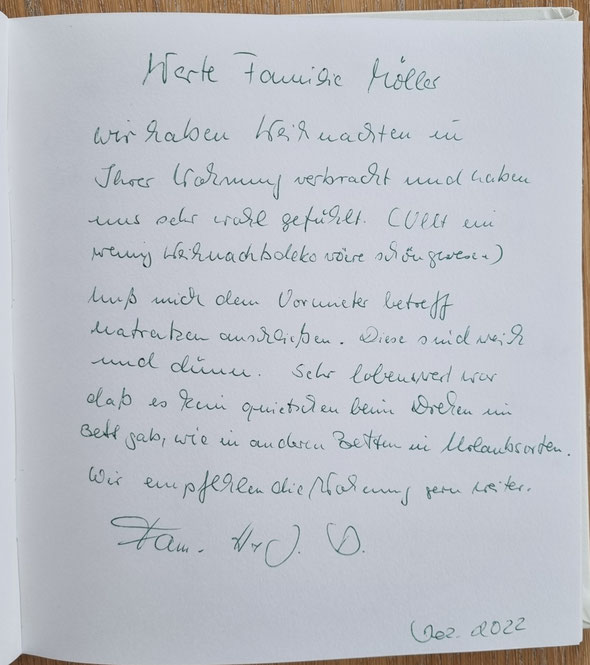 Werte Familie Möller
wir haben Weihnachten in
Ihrer Wohnung verbracht und haben
uns sehr wohl gefühlt. (Vllt ein
wenig Weihnachtsdeko wäre schön gewesen)
Muß mich dem Vormieter betreff
Matratzen anschließen. Diese sind weich
und dünn. Sehr lobenswert war
daß es kein quietschen beim Drehen im
Bett gab, wie in anderen Betten in Urlaubsorten.
Wir empfehlen die Wohnung gern weiter.
Fam. J. D.
Dez. 2022